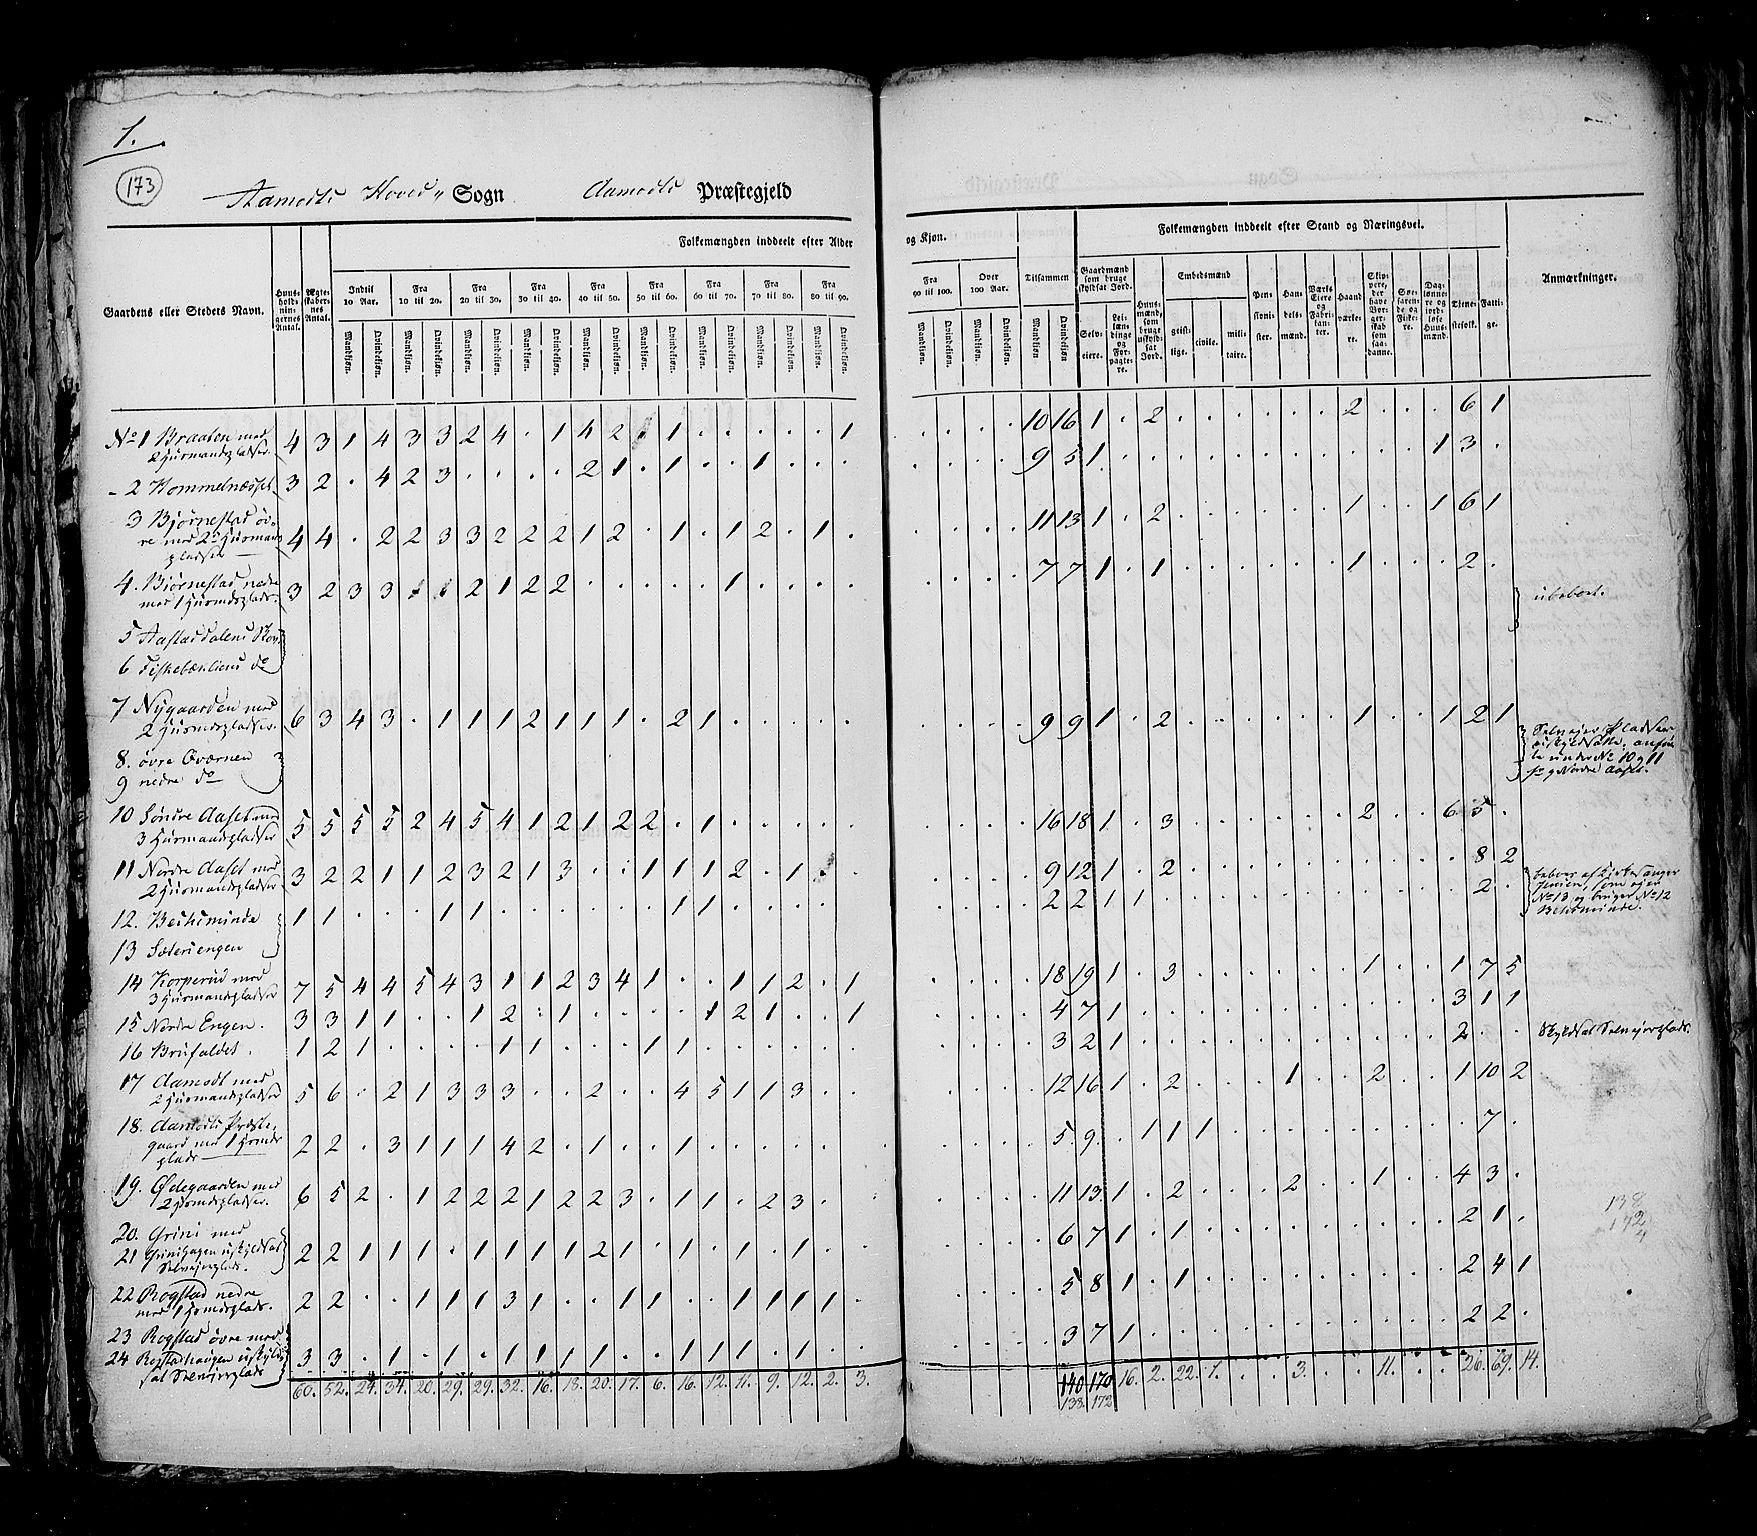 1.
173
Aamodts Hoved Sogn Aamodts Præstegjeld
Folkemængden inddeelt efter Alder og Kjøn.
Folkemængden inddeelt efter Stand og Næringsvei.
Gaardens eller Stedets Navn.
Huus-holdnin-gernes Antal.
Ægte-skaber-nes Antal.
Indtil 10 Aar.
Fra 10 til 20.
Fra 20 til 30.
Fra 30 til 40.
Fra 40 til 50.
Fra 50 til 60.
Fra 60 til 70.
Fra 70 til 80.
Fra 80 til 90.
Fra 90 til 100.
Over 100 Aar.
Tilsammen
Mandkiøn. Qvindekiøn.
Gaardmænd som bruge skyldsat Jord.
Selveiere.
Leilændinge og Forpagtere.
Huusmænd, som bruge uskyldsat Jord.
Embedsmænd
geistlige.
civile.
militaire.
Pensionister.
Handelsmænd.
Værks Eiere og Fabrikanter.
Haandværkere.
Skippere, der have Borgerskab som saadanne.
Søefarende og Fiskere.
Daglønnere og jordløse Huusmænd.
Tjenestefolk.
Fattige.
Anmærkninger.
No 1 Braaten med 2 Huusmandspladser. 4 3 1 4 3 3 2 4 . 1 4 2 . 1 . . . . . 1 . . . . 10 16 1 . 2 . . . . . . 2 . . . 6 1
- 2 Hommelnæsset 3 2 . 4 2 3 . . . . 2 1 . 1 . . 1 . . . . . . . 9 5 1 . . . . . . . . . . . 1 3 .
3 Bjørnestad øvre med 2 Huusmandspladser 4 4 . 2 2 3 3 2 2 2 1 2 . 1 . 1 2 . 1 . . . . 11 13 1 . 2 . . . . . . 1 . . 1 6 1
4. Biørnestad nedre med 1 Huusmdsplads. 3 2 3 3 1 1 2 1 2 2 . . . . . 1 . . . . . . . . 7 7 1 . 1 . . . . . . 1 . . . 2 .
5 Aastaddalens Skov
6 Fiskebækliens do
ubeboet.
7 Nygaarden med 2 Huusmdspladser. 6 3 4 3 . 1 1 1 2 1 1 1 . 2 1 . . . . . . . . . 9 9 1 . 2 . . . . . . 1 . . 1 2 1
8. øvre Qværnen
9 nedre do
Selveier Pladser uskyldsatte. anførte under No 10 og 11 Sø og Nordre Aaset.
10 Søndre Aaset med 3 Huusmandspladser 5 5 5 5 2 4 5 4 1 2 1 2 2 . 1 . . . . . . . . . 16 18 1 . 3 . . . . . . 2 . . 6 5 .
11 Nordre Aaset med 2 Huusmandspladser 3 2 2 1 1 2 3 2 1 3 . . 1 1 1 2 . 1 . . . . . 9 12 1 . 2 . . . . . . . . . . 8 2
12. Besksminde 1 1 . . . 1 1 . . . . . . 1 1 . . . . . . . . . 2 2 1 1 . . . . . . . . . . . 2 .
13 Sæteriengen
beboes af Kirkesanger Jensen, som ejer No 13 og bruger No 12
14 Korperud med 3 Huusmandspladser 7 5 4 4 5 4 3 1 1 2 3 4 1 . . 1 1 2 . 1 . . . . 18 19 1 . 3 . . . . . . 1 . . 1 7 5
15 Nordre Engen. 3 3 1 1 . . 1 2 . 1 . . . . 1 2 1 . . 1 . . . . 4 7 1 . . . . . . . . . . . 3 1 1
16 Brufaldet. 1 2 1 . . . . 1 1 . . . 1 1 . . . . . . . . . . 3 2 1 . . . . . . . . . . . 2 . .
Skyldsat Selvejerplads.
17 Aamodt med 2 Huusmandspladser 5 6 . 2 1 3 3 3 . . 2 . . 4 5 1 1 3 . . . . . . 12 16 1 . 2 . . . 1 . . 2 . . 1 10 2
18. Aamodts Præstegaard med 1 Huusmdsplads 2 2 . 3 1 1 1 4 2 . 1 . . 1 . . . . . . . . . . 5 9 . 1 1 1 . . . . . . . . . 7 .
19. Ødegaarden med 2 Huusmdspladser. 6 5 2 . 1 2 2 2 1 2 2 3 . 1 1 . 2 3 . . . . . . 11 13 1 . 2 . . . 2 . . 1 . . 4 3 .
20. Grini med
21 Grinihagen uskyldsat Selvejerplads. 2 2 1 1 1 . 1 1 1 1 2 1 . 1 . 1 . 1 . . . . . . 6 7 1 . 1 . . . . . . . . . 2 1 .
22 Rogstad nedre med 1 Huusmdsplads. 2 2 . . 1 1 1 3 1 . . 1 1 . . 1 1 1 1 . . . . . 5 8 1 . 1 . . . . . . . . . 2 4 1
23 Rogstad øvre med
24 Rogstadhaugen uskyldsat Selvejerplads 3 3 . 1 . 1 . 1 1 1 1 . . 1 1 1 . 1 . . . . . . 3 7 1 . . . . . . . . . . . 2 2 .
60. 52. 24. 34. 20. 29. 29. 32. 16. 18. 20. 17. 6. 16. 12. 11. 9. 12. 2. 3. 140 170 16. 2. 22. 1. . . 3. . . 11. . . 26. 69. 14.
138. 172
138
172
4